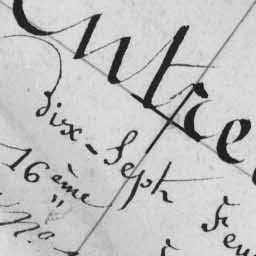 entre
Dix-Sept
16ème
Feu
No